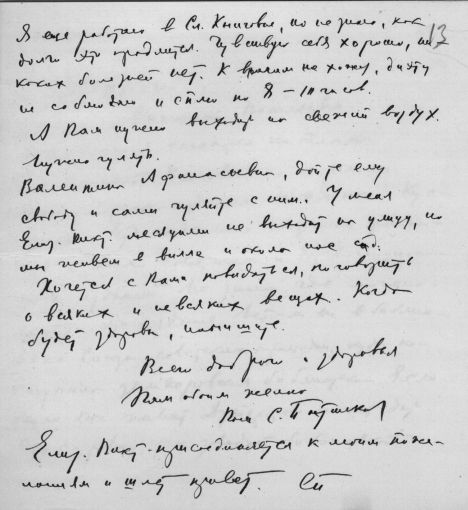 Я еще работаю в Сл. Книговы, но не знаю, как 13
долго это продлится. Чувствую себя хорошо, ни
каких болезней нет. К врачам не хожу, диэту
не соблюдаю и сплю по 8–10 часов.
А Вам нужно выходить на свежий воздух.
Нужно гулять.
Валентина Афанасьевна, дайте ему
свободу и сами гуляйте с ним. У меня
Елиз. Викт. месяцами не выходит на улицу, но
мы живем в вилле и около нас сад.
Хочется с Вами повидаться, поговорить
о всяких и невсяких вещах. Когда
будете здоровы, напишите.
Всего доброго и здоровья
Вам обоим желаю
Ваш С.
Елиз. Викт. присоединяется к моим поже-
ланиям и шлет привет. СП